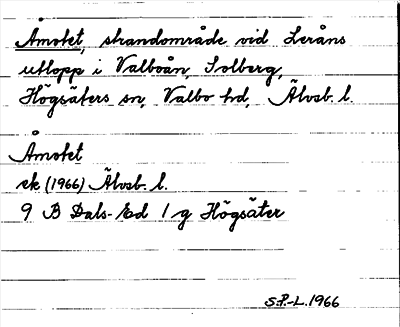 Åmotet, strandområde vid Leråns
utlopp i Valboån, Solberg,
Högsäters sn, Valbo hd, Älvsb. l.
Åmotet
ek (1966) Älvsb. l.
9 B Dals-Ed 1 g Högsäter
S.P.-L. 1966